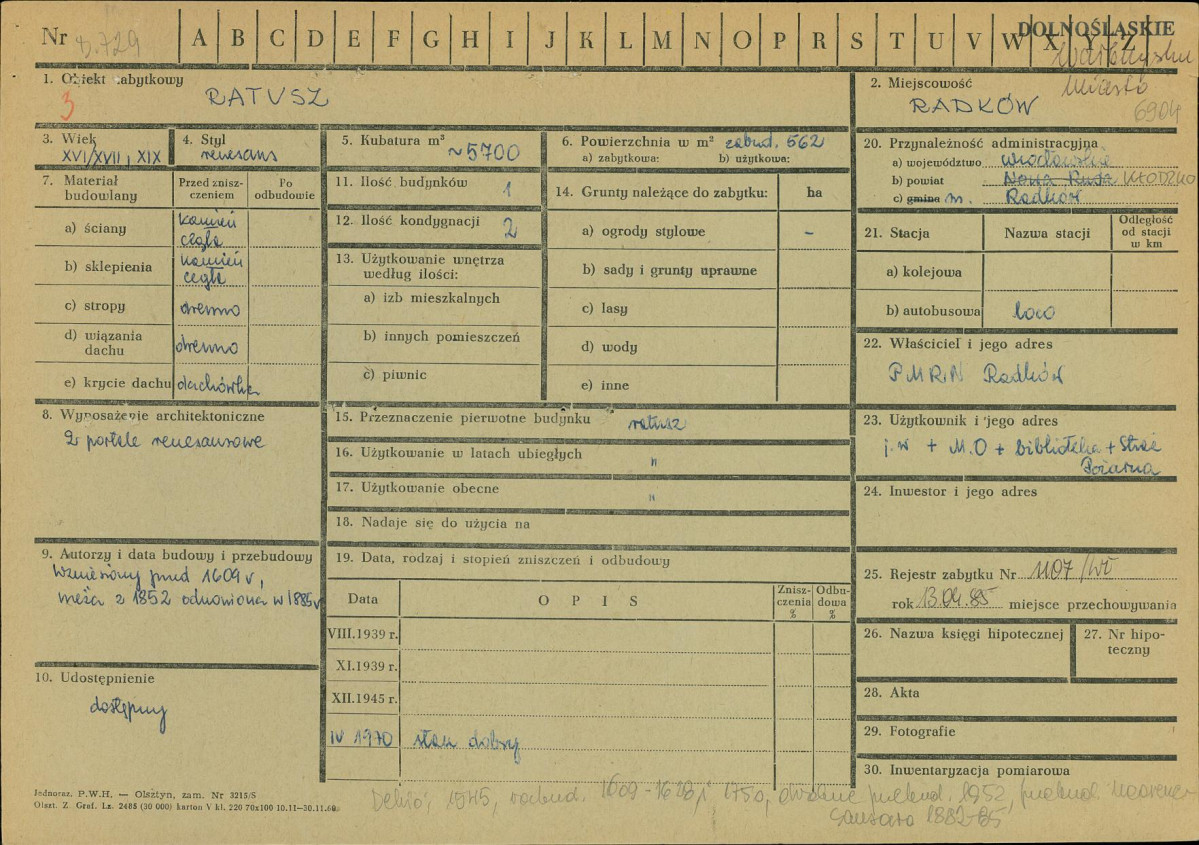 Nr
A B C D E F G H I J K L M N O P R S T U V W X Y Z
DOLNOŚLĄSKIE
1. Obiekt zabytkowy
RATUSZ
3
2. Miejscowość
Miasto
RADKÓW
6904
3. Wiek
XVI/XVII, XIX
4. Styl
renesans
5. Kubatura m³
~5700
6. Powierzchnia w m² zabud. 562
a) zabytkowa: b) użytkowa:
7. Materiał budowlany
Przed znisz-
czeniem
Po
odbudowie
a) ściany
kamień
cegła
b) sklepienia
kamień
cegła
c) stropy
drewno
d) wiązania
dachu
drewno
e) krycie dachu
dachówka
8. Wyposażenie architektoniczne
2 portale renesansowe
9. Autorzy i data budowy i przebudowy
Wzniesiony przed 1609 r,
wieża z 1852 odnowiona w 1885 r
10. Udostępnienie
dostępny
11. Ilość budynków
1
12. Ilość kondygnacji
2
13. Użytkowanie wnętrza
według ilości:
a) izb mieszkalnych
b) innych pomieszczeń
c) piwnic
14. Grunty należące do zabytku:
ha
a) ogrody stylowe
-
b) sady i grunty uprawne
c) lasy
d) wody
e) inne
15. Przeznaczenie pierwotne budynku ratusz
16. Użytkowanie w latach ubiegłych "
17. Użytkowanie obecne "
18. Nadaje się do użycia na
19. Data, rodzaj i stopień zniszczeń i odbudowy
Data
OPIS
Znisz-
czenia
%
Odbu-
dowa
%
VIII.1939 r.
XI.1939 r.
XII.1945 r.
IV 1970 stan dobry
20. Przynależność administracyjna
a) województwo wrocławskie
b) powiat Nowa Ruda KŁODZKO
c) gmina m. Radków
21. Stacja
Nazwa stacji
Odległość
od stacji
w km
a) kolejowa
b) autobusowa
loco
22. Właściciel i jego adres
PMRN Radków
23. Użytkownik i jego adres
j.w + M.O + biblioteka + Straż
Pożarna
24. Inwestor i jego adres
25. Rejestr zabytku Nr 1107/Wł
rok 13.04.85 miejsce przechowywania
26. Nazwa księgi hipotecznej
27. Nr hipo-
teczny
28. Akta
29. Fotografie
30. Inwentaryzacja pomiarowa
Jednoraz. P.W.H. — Olsztyn, zam. Nr 3215/S
Olszt. Z. Graf. Lz. 2485 (30 000) karton V kl. 220 70x100 10.11—30.11.69
Dehio: 1545, rozbud. 1609-1628, i 1750,